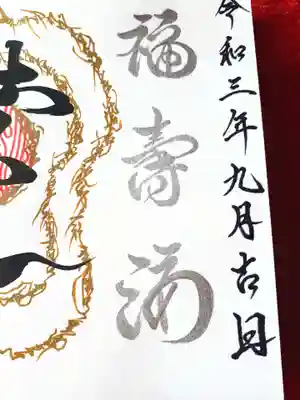 令和三年九月吉日
福壽海